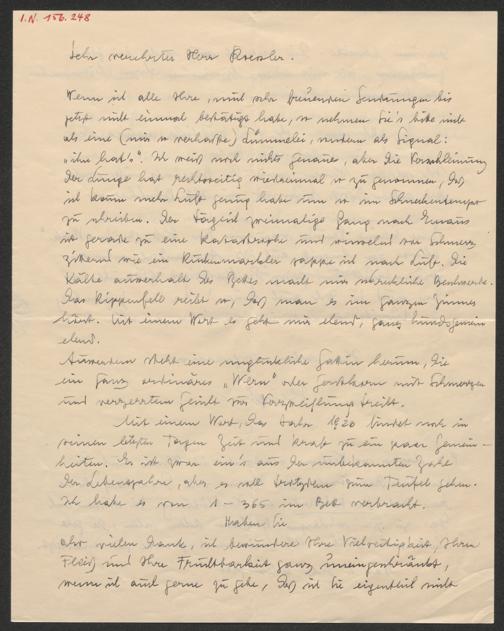 I.N. 156.248
Sehr verehrter Herr Roessler.
Wenn ich alle Ihre, mich sehr freuenden Sendungen bis
jetzt nicht einmal bestätigt habe, so nehmen Sie's bitte nicht
als eine (mir so verhaßte) Lümmelei, sondern als Signal:
"ihn hat's". Ich weiß noch nichts Genaues, aber die Verschleimung
der Lunge hat rechtzeitig wiedereinmal so zugenommen, daß
ich kaum mehr Luft genug habe um so im Schneckentempo
zu schreiben. Der täglich zweimalige Gang nach Emaus
ist gerade zu eine Katastrophe und winselnd vor Schmerz
zitternd wie ein Rückenmarkler schnappe ich nach Luft. Die
Kälte ausserhalb des Bettes macht mir schreckliche Beschwerde.
Das Rippenfell reibt so, daß man es im ganzen Zimmer
hört. Mit einem Wort es geht mir elend, ganz hundsgemein
elend.
Ausserdem steht eine unglückliche Gattin herum, die
ein ganz ordinäres "Wern" oder Gerstkorn mit Schmerzen
und verzerrtem Gesicht zur Verzweiflung treibt.
Mit einem Wort, das Jahr 1920 findet noch in
seinen letzten Tagen Zeit und Kraft zu ein paar Gemein-
heiten. Es ist zwar ein's aus der unbekannten Zahl
der Lebensjahre, aber es soll trotzdem zum Teufel gehen.
Ich habe es von 1 – 365 im Bett verbracht.
Haben Sie
also vielen Dank, ich bewundere Ihre Vielseitigkeit, Ihren
Fleiß und Ihre Fruchtbarkeit ganz uneingeschränkt,
wenn ich auch gerne zu gebe, daß ich Sie eigentlich nicht